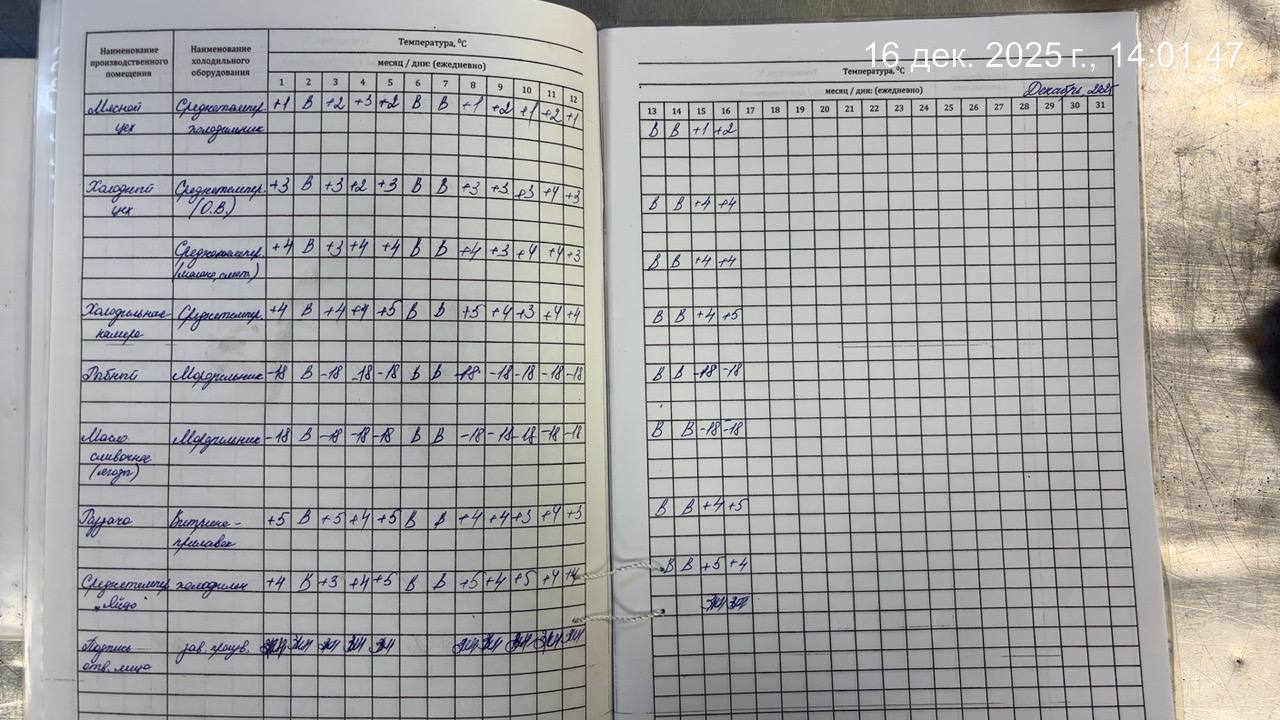 16 дек. 2025 г., 14:01:47
Наименование производственного помещения
Наименование холодильного оборудования
Температура, ⁰С
месяц / дни: (ежедневно)
1 2 3 4 5 6 7 8 9 10 11 12
Мясной Среднетемпер. +1 В +2 +3 +2 В В +1 +2 +1 +2 +1
цех холодильник
Холодный Среднетемпер. +3 В +3 +2 +3 В В +3 +3 +3 +4 +3
цех (О.В.)
Среднетемпер. +4 В +3 +4 +4 В В +4 +3 +4 +4 +3
(молоко, смет.)
Холодильная Среднетемпер. +4 В +4 +4 +5 В В +5 +4 +3 +4 +4
камера
Рыбный Морозильник -18 В -18 -18 -18 В В -18 -18 -18 -18 -18
Масло Морозильник -18 В -18 -18 -18 В В -18 -18 -18 -18 -18
сливочное
(ягоды)
Раздача Витрина- +5 В +5 +4 +5 В В +4 +4 +3 +4 +3
прилавок
Среднетемпер. холодильн +4 В +3 +4 +5 В В +5 +4 +5 +4 +4
"Яйцо"
Подпись зав. произв.
отв. лица
Температура, ⁰С
месяц / дни: (ежедневно) Декабрь 2025
13 14 15 16 17 18 19 20 21 22 23 24 25 26 27 28 29 30 31
В В +1 +2
В В +4 +4
В В +4 +4
В В +4 +5
В В -18 -18
В В -18 -18
В В +4 +5
В В +5 +4